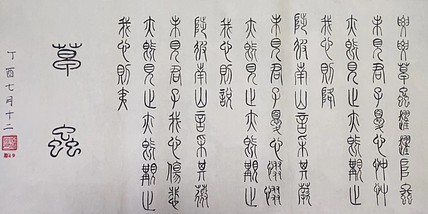 喓喓草蟲趯趯阜螽
未見君子憂心忡忡
亦既見止亦既覯止
我心則降
陟彼南山言采其蕨
未見君子憂心惙惙
亦既見止亦既覯止
我心則說
陟彼南山言采其薇
未見君子我心傷悲
亦既見止亦既覯止
我心則夷
草蟲
丁酉七月十二